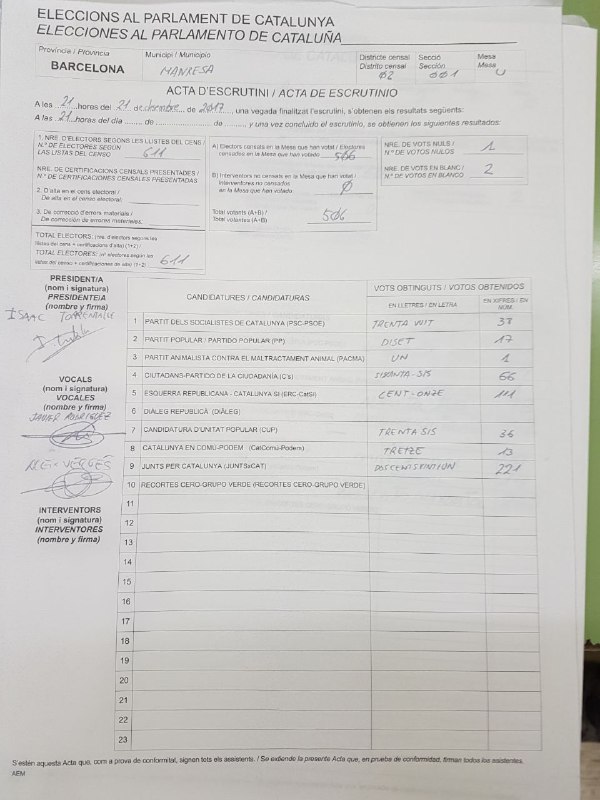 ELECCIONS AL PARLAMENT DE CATALUNYA
ELECCIONES AL PARLAMENTO DE CATALUÑA
Província / Provincia
BARCELONA
Municipi / Municipio
MANRESA
Districte censal
Distrito censal
02
Secció
Sección
001
Mesa
Mesa
U
ACTA D'ESCRUTINI / ACTA DE ESCRUTINIO
A les 21 horas del 21 de desembre de 2017, una vegada finalitzat l'escrutini, s'obtenen els resultats següents:
A las 21 horas del día ........ de ........ de ........ y una vez concluido el escrutinio, se obtienen los siguientes resultados:
1. NRE. D'ELECTORS SEGONS LES LLISTES DEL CENS /
N.º DE ELECTORES SEGÚN
LAS LISTAS DEL CENSO 611
NRE. DE CERTIFICACIONS CENSALS PRESENTADES /
N.º DE CERTIFICACIONES CENSALES PRESENTADAS
2. D'alta en el cens electoral /
De alta en el censo electoral:
3. De correcció d'errors materials /
De corrección de errores materiales:
TOTAL ELECTORS: (nre. d'electors segons les
llistes del cens + certificacions d'alta) (1+2) /
TOTAL ELECTORES: (nº electores según las
listas del censo + certificaciones de alta) (1+2) 611
A) Electors censats en la Mesa que han votat / Electores
censados en la Mesa que han votado 506
B) Interventors no censats en la Mesa que han votat /
Interventores no censados
en la Mesa que han votado: 0
Total votants (A+B) /
Total votantes (A+B) 506
NRE. DE VOTS NULS /
N.º DE VOTOS NULOS 1
NRE. DE VOTS EN BLANC /
N.º DE VOTOS EN BLANCO 2
PRESIDENT/A
(nom i signatura)
PRESIDENTE/A
(nombre y firma)
ISAAC
VOCALS
(nom i signatura)
VOCALES
(nombre y firma)
JAVIER RODRIGUEZ
ALEIX VERGÉS
INTERVENTORS
(nom i signatura)
INTERVENTORES
(nombre y firma)
CANDIDATURES / CANDIDATURAS
VOTS OBTINGUTS / VOTOS OBTENIDOS
EN LLETRES / EN LETRA
EN XIFRES / EN NÚM.
1 PARTIT DELS SOCIALISTES DE CATALUNYA (PSC-PSOE) TRENTA VUIT 38
2 PARTIT POPULAR / PARTIDO POPULAR (PP) DISET 17
3 PARTIT ANIMALISTA CONTRA EL MALTRACTAMENT ANIMAL (PACMA) UN 1
4 CIUTADANS-PARTIDO DE LA CIUDADANÍA (C's) SIXANTA-SIS 66
5 ESQUERRA REPUBLICANA - CATALUNYA SÍ (ERC-CatSÍ) CENT-ONZE 111
6 DIÀLEG REPUBLICÀ (DIÀLEG)
7 CANDIDATURA D'UNITAT POPULAR (CUP) TRENTA SIS 36
8 CATALUNYA EN COMÚ-PODEM (CatComú-Podem) TRETZE 13
9 JUNTS PER CATALUNYA (JUNTSxCAT) 221
10 RECORTES CERO-GRUPO VERDE (RECORTES CERO-GRUPO VERDE)
11
12
13
14
15
16
17
18
19
20
21
22
23
S'estén aquesta Acta que, com a prova de conformitat, signen tots els assistents. / Se extiende la presente Acta que, en prueba de conformidad, firman todos los asistentes.
AEM